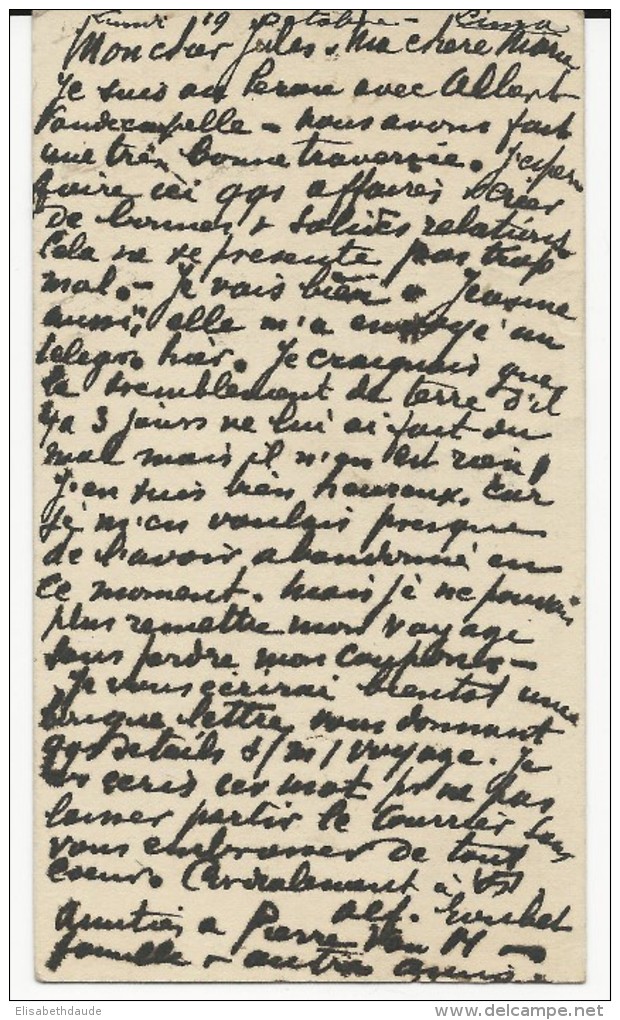 Lundi 19 octobre - Lima
Mon cher Jules & Ma chère Marie
Je suis au Perou avec Albert
Vandecapelle - nous avons fait
une très bonne traversée. J'espère
faire ici qqs affaires & créer
de bonnes & solides relations
Cela ne se presente pas trop
mal. - Je vais bien & Jeanne
aussi, elle m'a envoyé un
telegr. hier. Je craignais que
le tremblement de terre d'il
ya 3 jours ne lui ai fait du
mal mais il n'en est rien!
J'en suis bien heureux, car
je m'en voulais presque
de l'avoir abandonné en
ce moment. Mais je ne pouvais
plus remettre mon voyage
sans perdre mon
Je vous écrirai bientot une
longue lettre, vous donnant
qqs details s/m/voyage. Je
vs ecris ces mot pr ne pas
laisser partir le courrier sans
vous embrasser de tout
coeur. Cordialement à Vs
Alf.
Amitiés a Pierre Van H -
famille - autres amis.
Elisabethdaude
delcampe.net